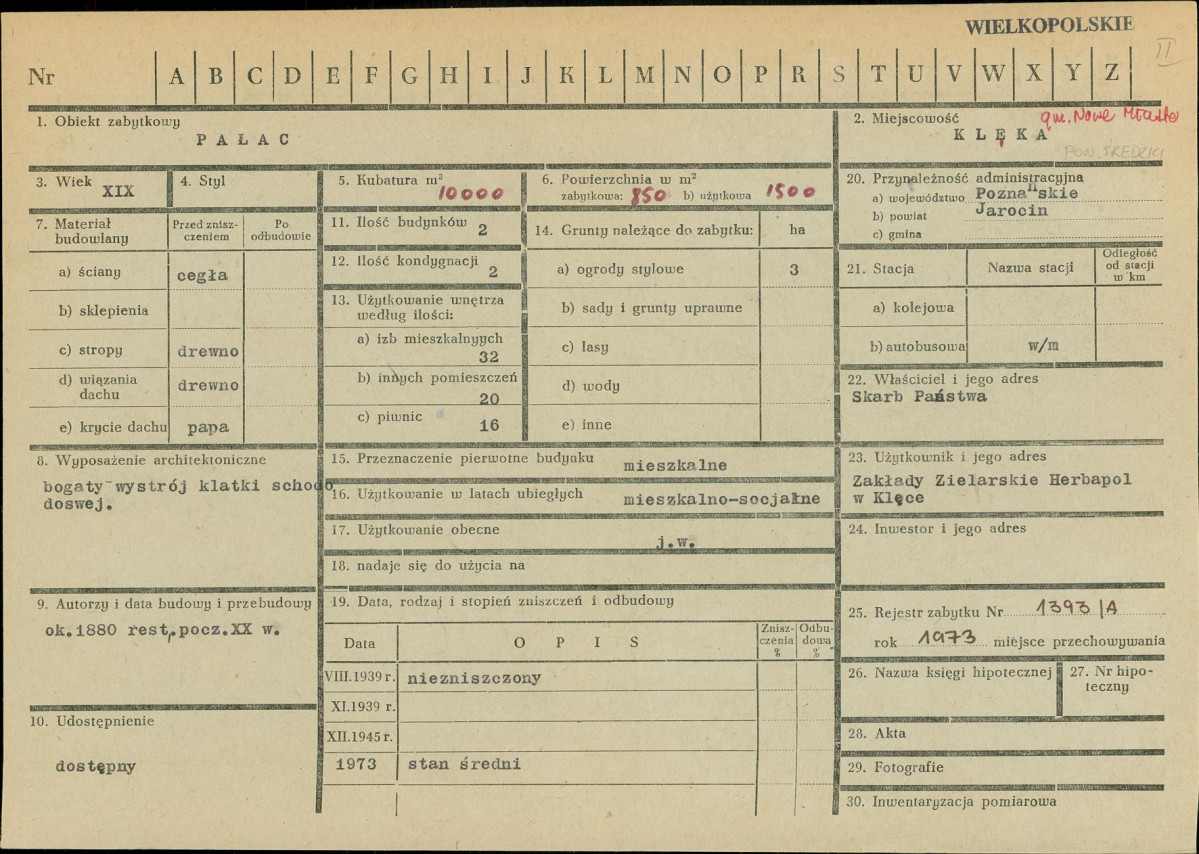 WIELKOPOLSKIE
II
Nr A B C D E F G H I J K L M N O P R S T U V W X Y Z
1. Obiekt zabytkowy
P A Ł A C
2. Miejscowość
gm. Nowe Miasto
K L Ę K A
POW. ŚREDZKI
3. Wiek
XIX
4. Styl
5. Kubatura m³
10000
6. Powierzchnia w m²
zabytkowa: 850 b) użytkowa 1500
20. Przynależność administracyjna
a) województwo Poznańskie
b) powiat Jarocin
c) gmina
7. Materiał budowlany
Przed znisz-
czeniem
Po
odbudowie
a) ściany cegła
b) sklepienia
c) stropy drewno
d) wiązania
dachu drewno
e) krycie dachu papa
11. Ilość budynków 2
12. Ilość kondygnacji
2
13. Użytkowanie wnętrza
według ilości:
a) izb mieszkalnyych
32
b) innych pomieszczeń
20
c) piwnic 16
14. Grunty należące do zabytku: ha
a) ogrody stylowe 3
b) sady i grunty uprawne
c) lasy
d) wody
e) inne
21. Stacja Nazwa stacji
Odległość
od stacji
w km
a) kolejowa
b) autobusowa w/m
22. Właściciel i jego adres
Skarb Państwa
8. Wyposażenie architektoniczne
bogaty wystrój klatki schodo
doswej.
15. Przeznaczenie pierwotne budynku mieszkalne
16. Użytkowanie w latach ubiegłych mieszkalno-socjalne
17. Użytkowanie obecne
j.w.
18. nadaje się do użycia na
23. Użytkownik i jego adres
Zakłady Zielarskie Herbapol
w Klęce
24. Inwestor i jego adres
9. Autorzy i data budowy i przebudowy
ok.1880 rest,.pocz.XX w.
10. Udostępnienie
dostępny
19. Data, rodzaj i stopień zniszczeń i odbudowy
Data O P I S
Znisz-
czenia
%
Odbu-
dowa
%
VIII.1939 r. niezniszczony
XI.1939 r.
XII.1945 r.
1973 stan średni
25. Rejestr zabytku Nr 1393/A
rok 1973 miejsce przechowywania
26. Nazwa księgi hipotecznej
27. Nr hipo-
teczny
28. Akta
29. Fotografie
30. Inwentaryzacja pomiarowa